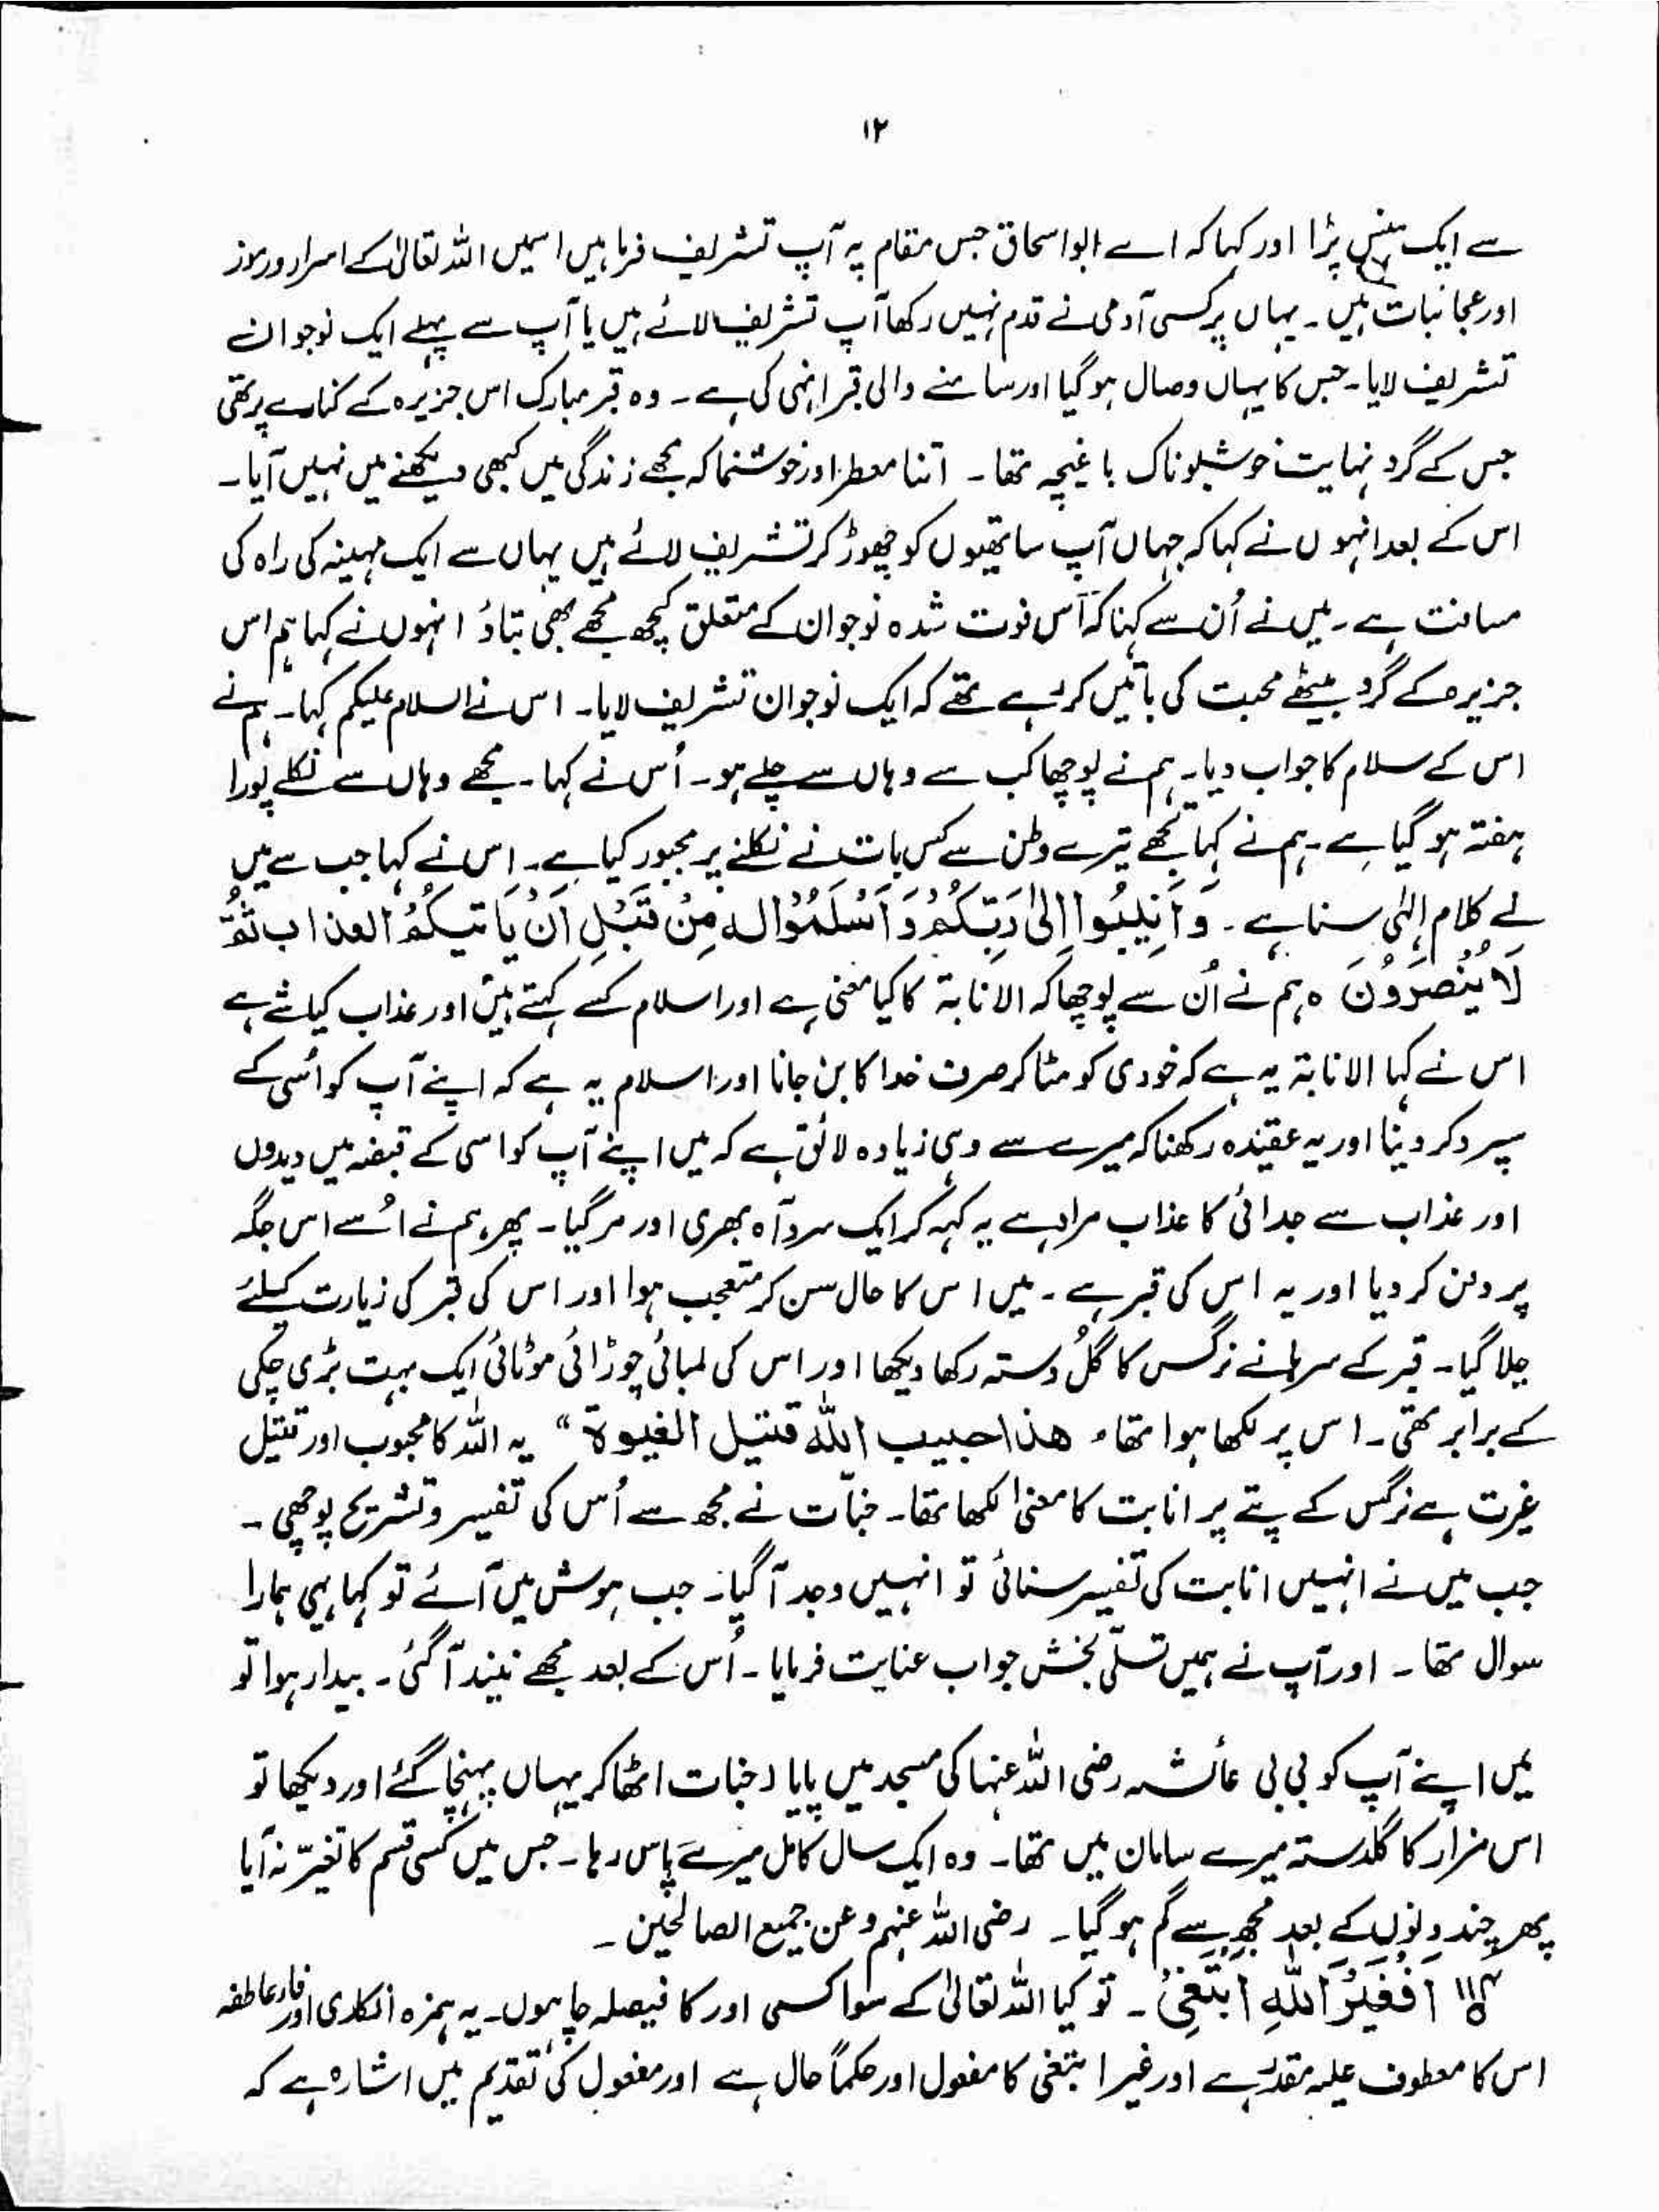 ۱۲
سے ایک ہنس پڑا اور کہا کہ اے ابواسحاق جس مقام پہ آپ تشریف فرما ہیں اسمیں اللہ تعالیٰ کے اسرار و رموز
اور عجائبات ہیں ۔ یہاں پر کسی آدمی نے قدم نہیں رکھا آپ تشریف لائے ہیں یا آپ سے پہلے ایک نوجوان
تشریف لایا ۔ جس کا یہاں وصال ہو گیا اور سامنے والی قبر انہی کی ہے ۔ وہ قبر مبارک اس جزیرہ کے کنارے پر تھی
جس کے گرد نہایت خوشبوناک باغیچہ تھا ۔ اتنا معطر اور خوشنما کہ مجھے زندگی میں کبھی دیکھنے میں نہیں آیا ۔
اس کے بعد انہوں نے کہا کہ جہاں آپ ساتھیوں کو چھوڑ کر تشریف لائے ہیں یہاں سے ایک مہینہ کی راہ کی
مسافت ہے ۔ میں نے اُن سے کہنا کہ اُس فوت شدہ نوجوان کے متعلق کچھ مجھے بھی بتاؤ انہوں نے کہا ہم اس
جزیرہ کے گرد بیٹھے محبت کی باتیں کر رہے تھے کہ ایک نوجوان تشریف لایا ۔ اس نے السلام علیکم کہا ۔ ہم نے
اس کے سلام کا جواب دیا ۔ ہم نے پوچھا کب سے وہاں سے چلے ہو ۔ اُس نے کہا ۔ مجھے وہاں سے نکلے پورا
ہفتہ ہو گیا ہے ۔ ہم نے کہا تجھے تیرے وطن سے کس بات نے نکلنے پر مجبور کیا ہے ۔ اس نے کہا جب سے میں
لے کلام الٰہی سنا ہے ۔ وَاَنِيْبُوا اِلٰى رَبِّكُمْ وَ اَسْلِمُوْا لہ مِنْ قَبْلِ اَنْ يَاتيكُمُ العذاب ثُمَّ
لَا يُنْصَرُوْنَ ہ ہم نے اُن سے پوچھا کہ الانابۃ کا کیا معنی ہے اور اسلام کسے کہتے ہیں اور عذاب کیا شے ہے
اس نے کہا الانابۃ یہ ہے کہ خودی کو مٹا کر صرف خدا کا بن جانا اور اسلام یہ ہے کہ اپنے آپ کو اُسی کے
سپرد کر دینا اور یہ عقیدہ رکھنا کہ میرے سے وہی زیادہ لائق ہے کہ میں اپنے آپ کو اسی کے قبضہ میں دیدوں
اور عذاب سے جدائی کا عذاب مراد ہے یہ کہہ کر ایک سرد آہ بھری اور مر گیا ۔ پھر ہم نے اُسے اس جگہ
پر دفن کر دیا اور یہ اس کی قبر ہے ۔ میں اس کا حال سن کر متعجب ہوا اور اس کی قبر کی زیارت کیلئے
چلا گیا ۔ قبر کے سرہانے نرگس کا گُل دستہ رکھا دیکھا اور اس کی لمبائی چوڑائی موٹائی ایک بہت بڑی چکی
کے برابر تھی ۔ اس پر لکھا ہوا تھا ، هذا حبيب الله قتيل الغيرة “ یہ اللہ کا محبوب اور قتیل
غیرت ہے نرگس کے پتے پر انابت کا معنیٰ لکھا تھا ۔ جنّات نے مجھ سے اُس کی تفسیر و تشریح پوچھی ۔
جب میں نے انہیں انابت کی تفسیر سنائی تو انہیں وجد آگیا ۔ جب ہوش میں آئے تو کہا یہی ہمارا
سوال تھا ۔ اور آپ نے ہمیں تسلّی بخش جواب عنایت فرمایا ۔ اُس کے بعد مجھے نیند آگئی ۔ بیدار ہوا تو
میں اپنے آپ کو بی بی عائشہ رضی اللہ عنہا کی مسجد میں پایا (جنات اٹھا کر یہاں پہنچا گئے اور دیکھا تو
اس مزار کا گلدستہ میرے سامان میں تھا ۔ وہ ایک سال کامل میرے پاس رہا ۔ جس میں کسی قسم کا تغیّر نہ آیا
پھر چند دنوں کے بعد مجھ سے گم ہو گیا ۔ رضی اللہ عنہم و عن جمیع الصالحین ۔
اَفَغَيْرَ اللهِ اَبْتَغِىْ ۔ تو کیا اللہ تعالیٰ کے سوا کسی اور کا فیصلہ چاہوں ۔ یہ ہمزہ انکاری اور فار عاطفہ
اس کا معطوف علیہ مقدر ہے اور غیر ابتغی کا مفعول اور حکماً حال ہے اور مفعول کی تقدیم میں اشارہ ہے کہ